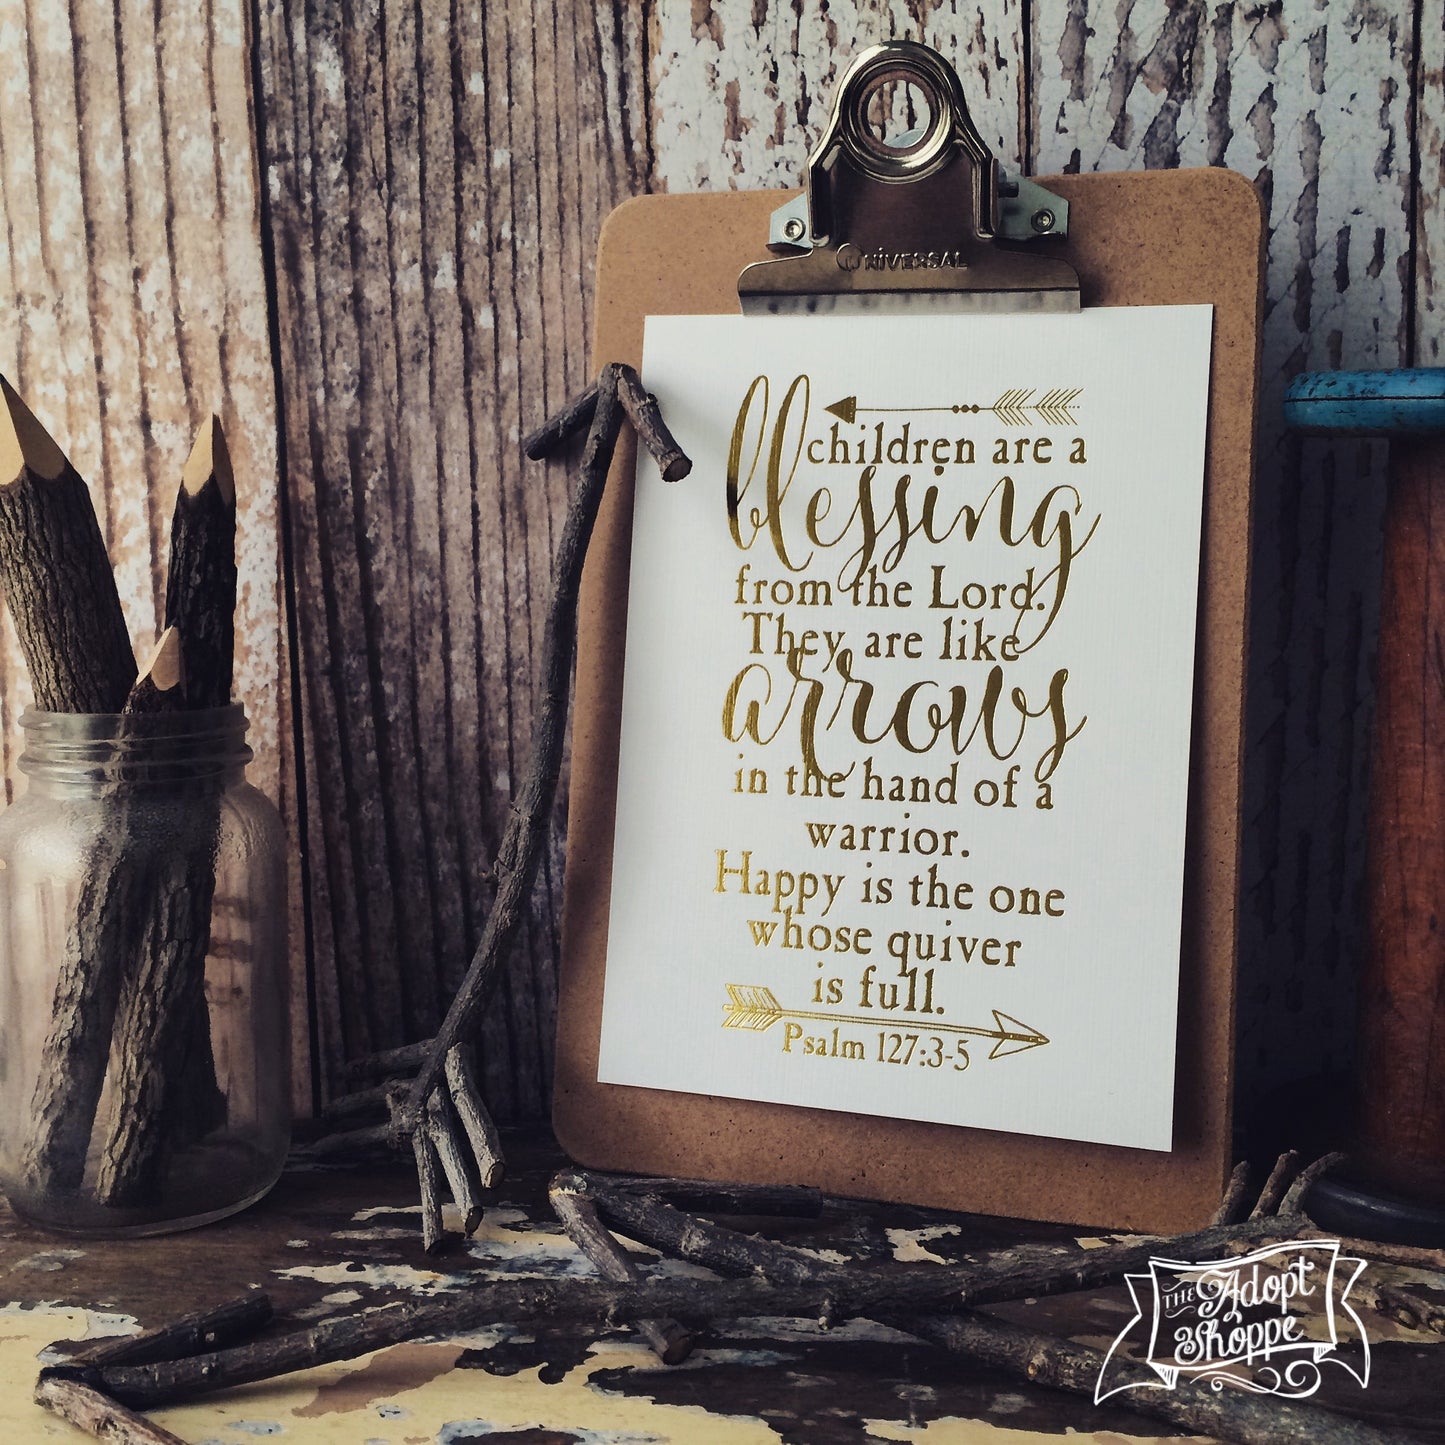 UNIVERSAL
children are a
blessing
from the Lord.
They are like
arrows
in the hand of a
warrior.
Happy is the one
whose quiver
is full.
Psalm 127:3-5
THE Adopt
Shoppe